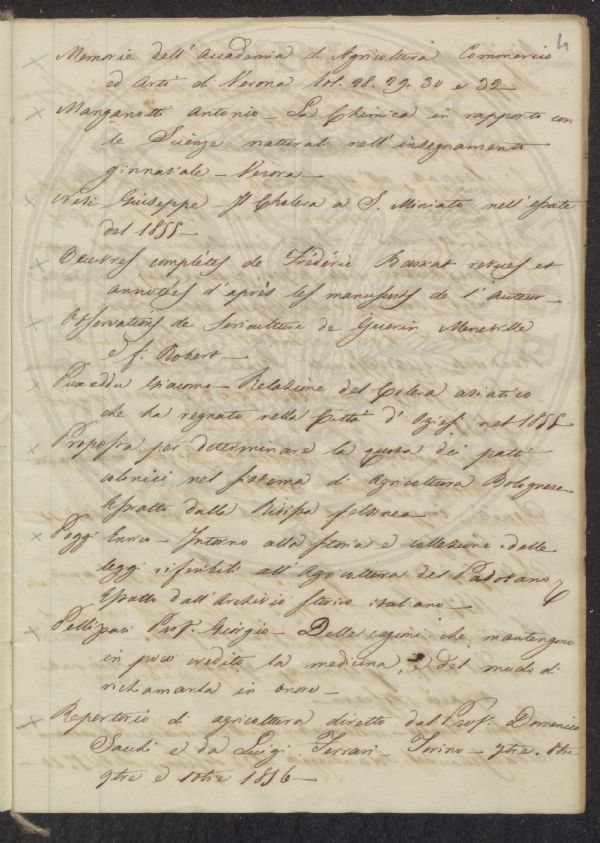 4
Memorie dell'Accademia di Agricoltura Commercio
ed Arti di Verona Vol. 28. 29. 30 e 32
Manganotti Antonio – La Chimica in rapporto con
le Scienze naturali nell'insegnamento
ginnasiale – Verona –
Giuseppe – Il Cholera a S. Miniato nell'estate
del 1855 –
Oeuvres complètes de Frédéric Bastiat revues et
annotées d'après les manuscrits de l'auteur –
Observations de Sericulture de Guerin Meneville
e f. Robert –
Puxeddu Giacomo – Relazione del Colera asiatico
che ha regnato nella Città d'Ozieri nel 1855
Proposta per determinare la quota dei patti
colonici nel sistema di Agricoltura Bolognese
Estratto dalla felsinea –
Poggi Enrico – Intorno alla storia e collezione delle
leggi riferibili all'Agricoltura del Padovano
Estratto dall'Archivio Storico italiano –
Pellizzari Prof. Giorgio – Delle cagioni che mantengono
in poco credito la medicina, e del modo di
richiamarla in onore –
Repertorio di agricoltura diretto dal Prof. Domenico
e da Luigi Ferrari – Torino – 7tre. 8tre
9tre e 1856 –